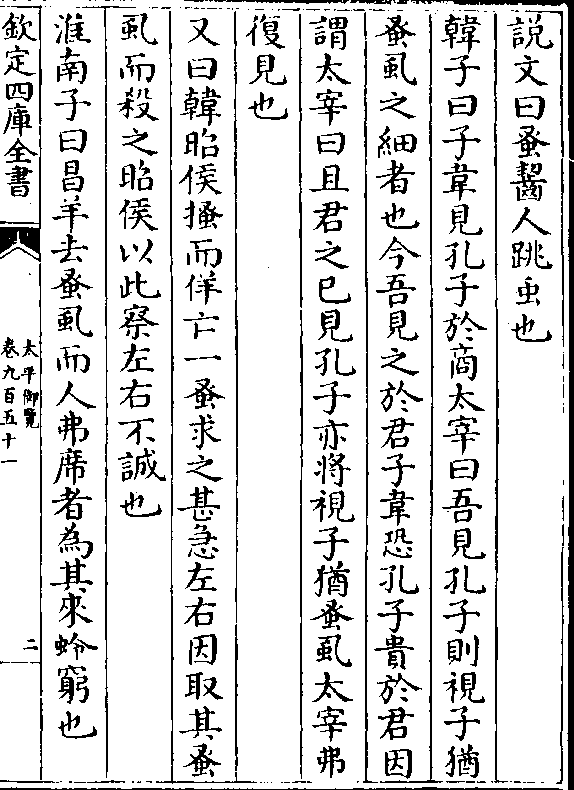 説文曰蚤齧人跳虫也
韓子曰子韋見孔子於商太宰曰吾見孔子則視子猶
蚤虱之細者也今吾見之於君子韋恐孔子貴於君因
謂太宰曰且君之已見孔子亦將視子猶蚤虱太宰弗
復見也
又曰韓昭侯搔而佯亡一蚤求之甚急左右因取其蚤
虱而殺之昭侯以此察左右不誠也
淮南子曰昌羊去蚤虱而人弗席者為其來蛉窮也
欽定四庫全書
太平御覽
卷九百五十一
二